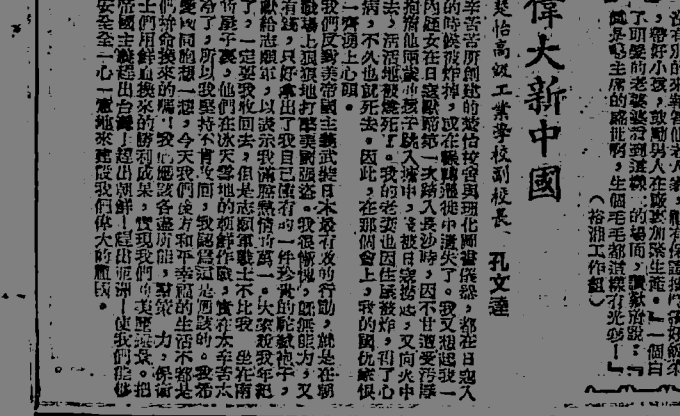 ，帶好小孩，鼓勵男人在廠裏加緊生產。』一個白
了可愛的老婆婆看到這樣的場面，讚歎着說：『
眞是毛主席的路批啊，生個毛毛都這樣有光彩！』
（裕湘工作組）
偉大新中國
楚怡高級工業學校副校長、孔文達
辛辛苦苦所創建的楚怡校舍與理化圖書儀器，都在日寇入
的時候被炸掉，或在輾轉遷徙中遺失了。我又想起我一
內姪女在日寇獸蹄第一次踏入長沙時，因不甘遭受污辱
抱着他兩歲的孩子跳入塘中，被日寇撈起，又向火中
去，活活地被燒死了。我的老妻也因住屋被炸，得了心
病，不久也就死去。因此，在那個會上，我的國仇家恨
一齊湧上心頭。
我們反對美帝國主義武裝日本最有效的行動，就是在朝
戰場上狠狠地打擊美國強盜。我很慚愧，旣無能力，又
有錢，只好拿出了我自己僅有的一件珍貴的駝絨袍子，
獻給志願軍，以表示我滿腔熱情的萬一。大家說我年紀
了，一定要我收回去，但是志願軍戰士不比我
在冰天雪地的朝鮮作戰，實在太辛苦
冷了，所以我堅持不肯收回，我認爲這是應該的。我希
同胞想一想，今天我們後方和平幸福的生活不都是
們拚命換來的嗎？我們應該各盡所能
士們用鮮血換來的勝利成果，實現我們的美麗遠景。把
帝國主義趕出台灣！趕出朝鮮！趕出亞洲！使我們能夠
安安全全一心一意地來建設我們偉大的祖國。